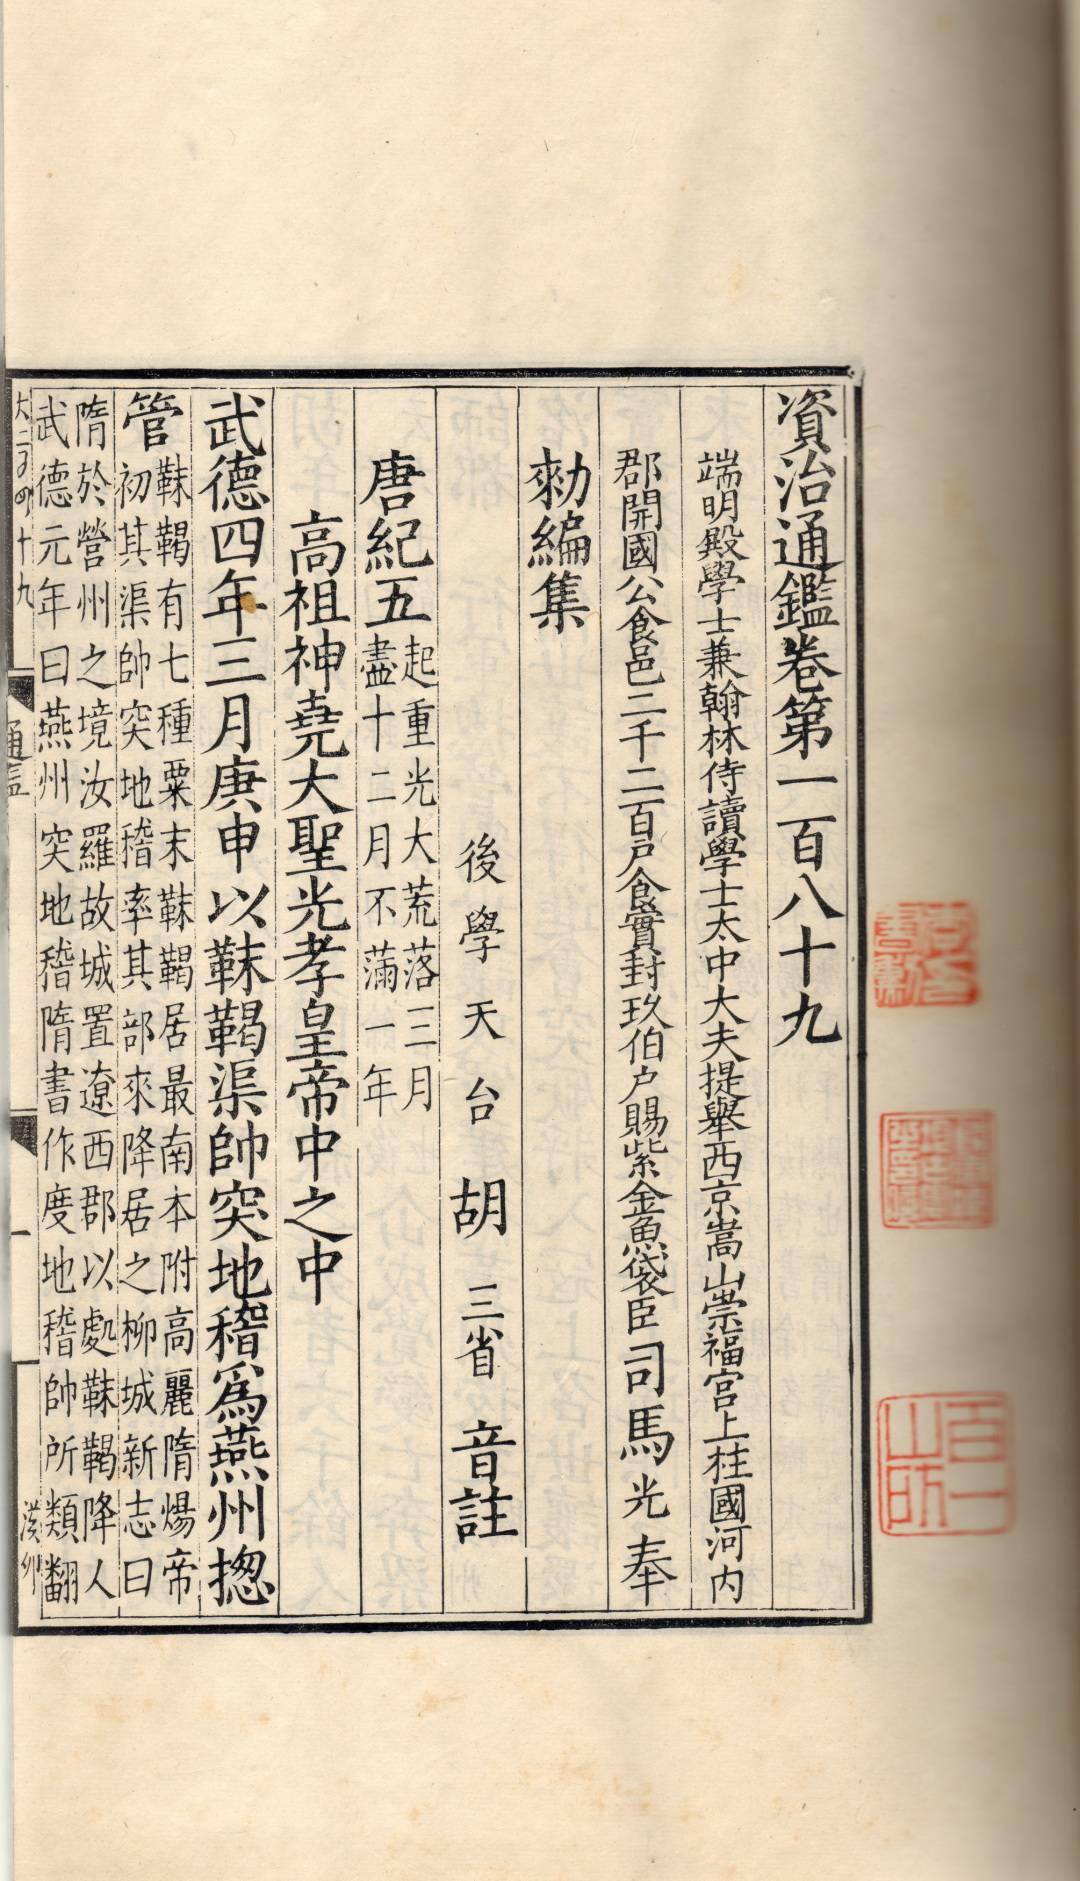 資治通鑑卷第一百八十九
端明殿學士兼翰林侍讀學士太中大夫提舉西京嵩山崇福宮上柱國河內
郡開國公食邑二千二百户食實封玖伯户賜紫金魚袋臣司馬光奉
勑編集
後學天台胡三省音註
唐紀五起重光大荒落三月
盡十二月不滿一年
高祖神堯大聖光孝皇帝中之中
武德四年三月庚申以靺鞨渠帥突地稽爲燕州揔
管靺鞨有七種粟末靺鞨居最南本附高麗隋煬帝
初其渠帥突地稽率其部來降居之柳城新志曰
隋於營州之境汝羅故城置遼西郡以處靺鞨降人
武德元年曰燕州突地稽隋書作度地稽帥所類翻
十九
通鑑
一
百一
山房